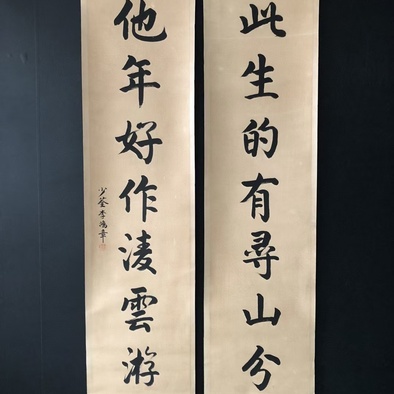 此生的有尋山分
他年好作淩雲游
少荃李鴻章